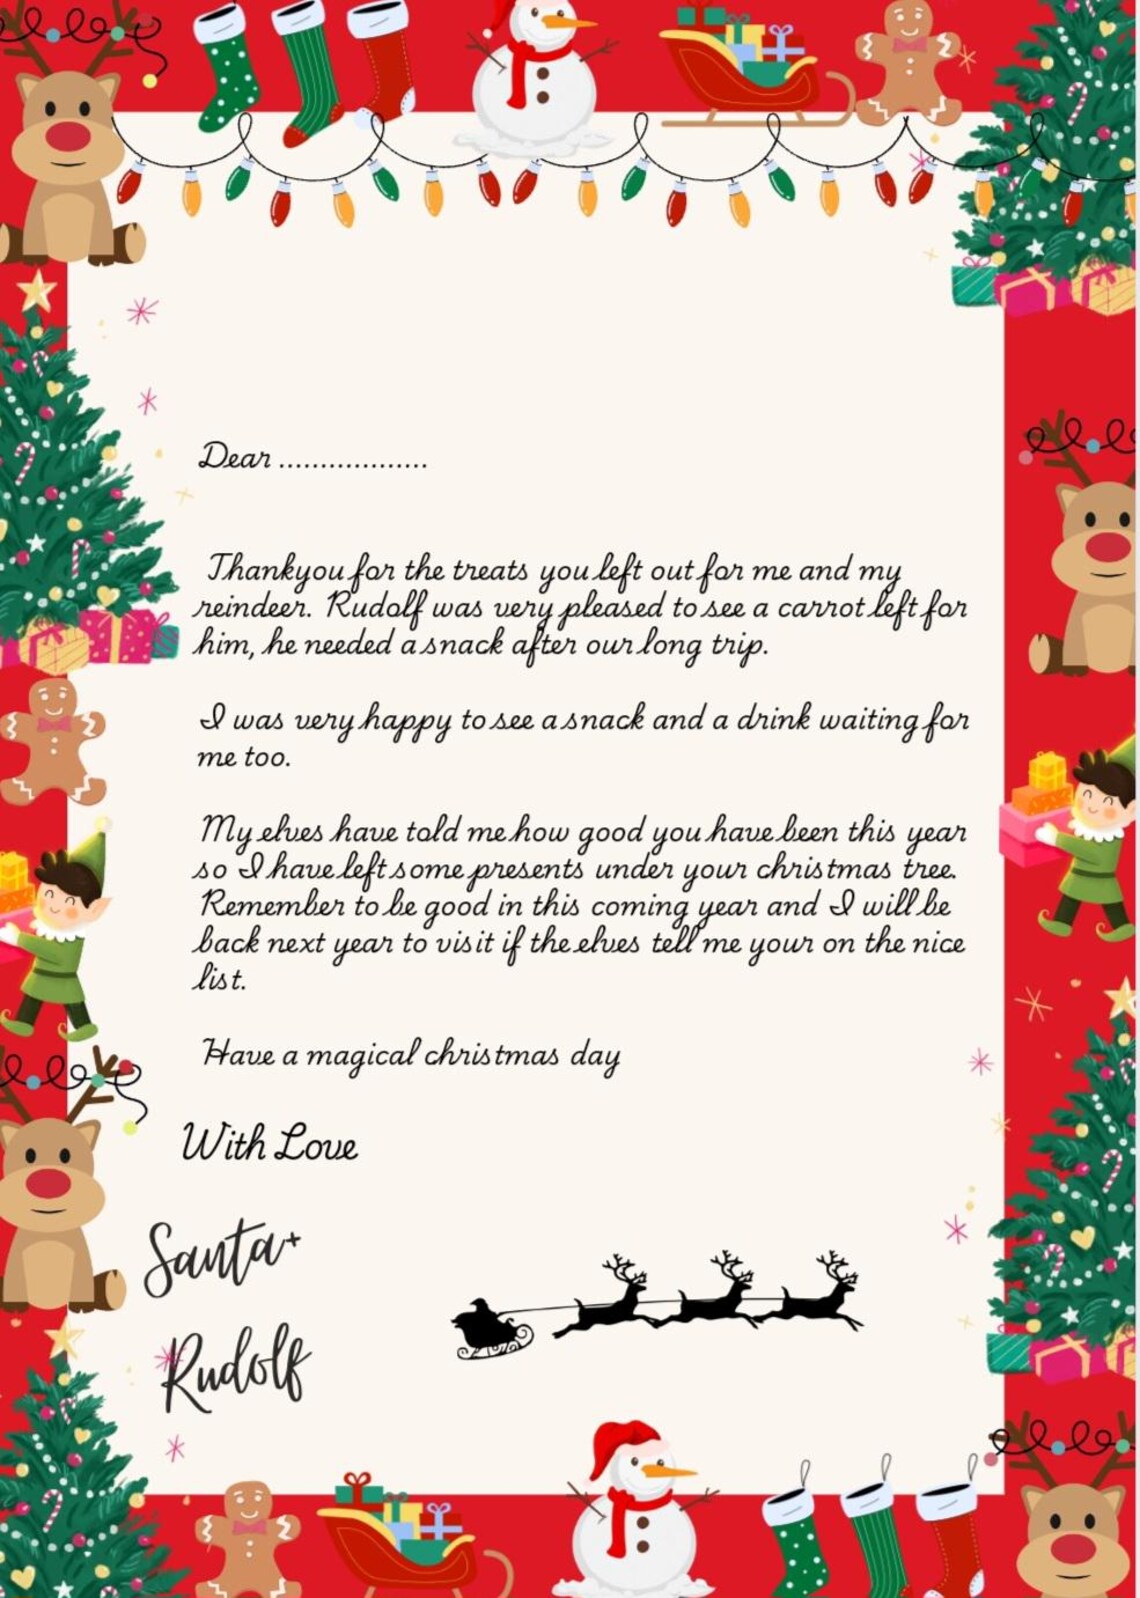 Dear ..................
Thankyou for the treats you left out for me and my
reindeer. Rudolf was very pleased to see a carrot left for
him, he needed a snack after our long trip.
I was very happy to see a snack and a drink waiting for
me too.
My elves have told me how good you have been this year
so I have left some presents under your christmas tree.
Remember to be good in this coming year and I will be
back next year to visit if the elves tell me your on the nice
list.
Have a magical christmas day
With Love
Santa+
Rudolf